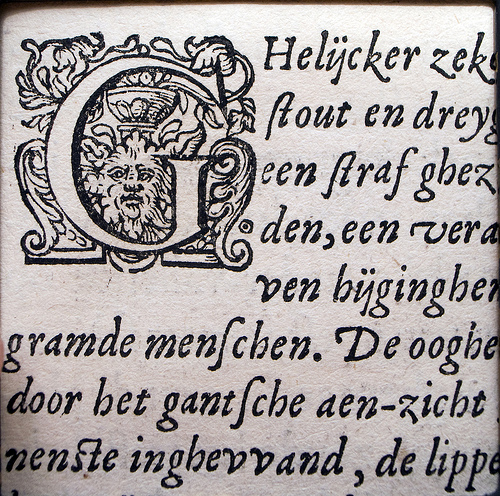 GHelijcker zeke
ſtout en dreyg
een ſtraf ghez
den, een vera
ven bijginghen
gramde menſchen. De ooghe
door het gantſche aen-zicht
nenſte inghevvand, de lippe